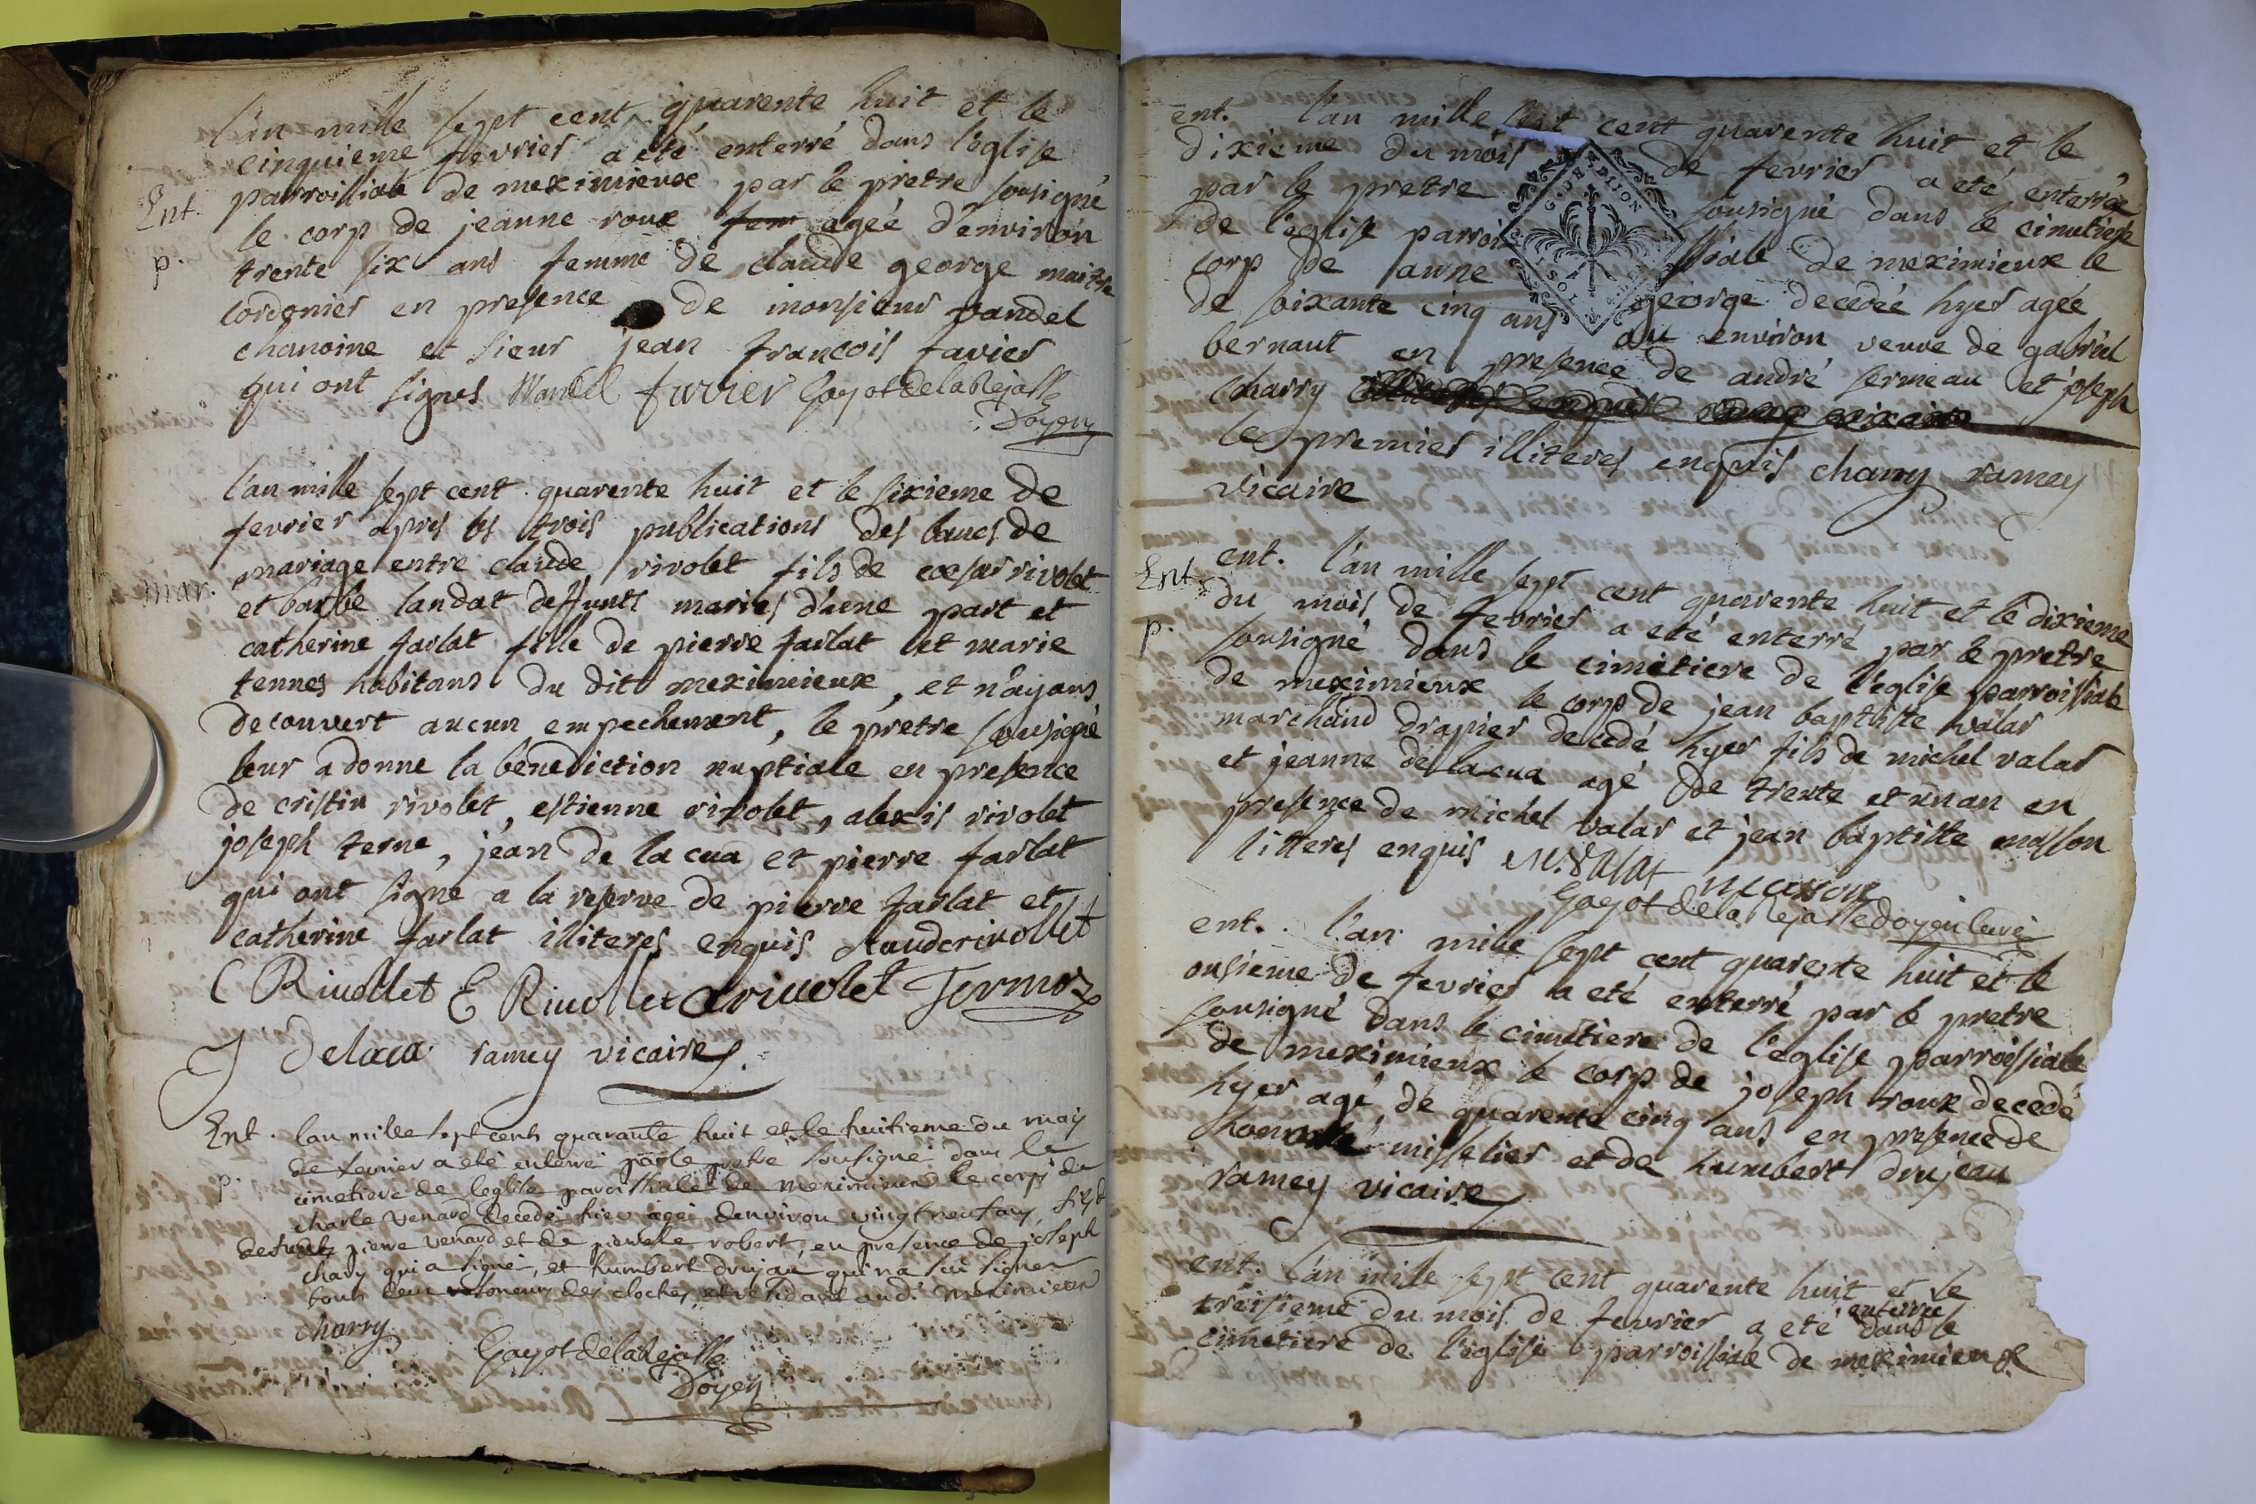 l'an mille sept cent quarente huit et le
cinquieme fevrier a eté enterré dans l'eglise
parroissiale de meximieux par le pretre sousigné
Ent.
le corp de jeanne roux fem agée d'environ
p.
trente six ans femme de claude george maitre
cordonier en presence de monsieur vandel
chanoine et sieur jean francois favier
qui ont signes Wandel favier Gayot de la Rejasse
Doyen
l'an mille sept cent quarente huit et le sixieme de
fevrier apres les trois publications des bancs de
mariage entre claude rivolet fils de coesar rivolet
mar.
et barbe landat deffunts maries d'une part et
catherine farlat fille de pierre farlat et marie
tennes habitans du dit meximieux, et n'ayans
decouvert aucun empechement, le pretre sousigné
leur a donne la benediction nuptiale en presence
de cristin rivolet, estienne rivolet, alexis rivolet
joseph terne, jean de la cua et pierre farlat
qui ont signe a la reserve de pierre farlat et
catherine farlat illiteres enquis claude rivollet
C Rivollet E Rivollet a rivolet Termoz
J Delacua ramey vicaire
Ent. lan mille sept cents quarante huit et le huitieme du moy
de fevrier a eté enterré par le pretre sousigné dans le
p.
cimetiere de leglise paroissiale de meximieux le corps de
charle venard decedé hier agé denviron vingt neuf ans, fils de
defunts pierre venard et de pierrette robert, en presence de joseph
chary qui a signé, et humbert drujau qui na su signer
tous deux sonneurs des cloches et residant aud. meximieux
charry
Gayot de la Rejasse
Doyen
ent. l'an mille sept cent quarente huit et le
dixieme du mois de fevrier a eté enterrée
par le pretre sousigné dans le cimetiere
de l'eglise parroissiale de meximieux le
corp de anne george decedée hyer agée
de soixante cinq ans ou environ veuve de gabriel
bernaut en presence de andré sermeau et joseph
charry
le premier illiteres enquis charry ramey
vicaire
Ent.
ent. l'an mille sept cent quarente huit et le dixieme
du mois de fevrier a eté enterré par le pretre
p.
sousigné dans le cimetiere de l'eglise parroissiale
de meximieux le corp de jean baptiste valar
marchand drapier decedé hyer fils de michel valar
et jeanne de lacua agé de trente et un an en
presence de michel valar et jean baptiste masson
litteres enquis M. Valar masson
Gayot de la Rejasse doyen curé
ent. l'an mille sept cent quarente huit et le
onsieme de fevrier a eté enterré par le pretre
sousigné dans le cimetiere de l'eglise parroissiale
de meximieux le corp de joseph roux decedé
hyer agé de quarente cinq ans en presence de
missetier et de humbert drujeau
ramey vicaire
ent. l'an mille sept cent quarente huit et le
treisieme du mois de fevrier a eté enterrée dans le
cimetiere de l'eglise parroissiale de meximieux